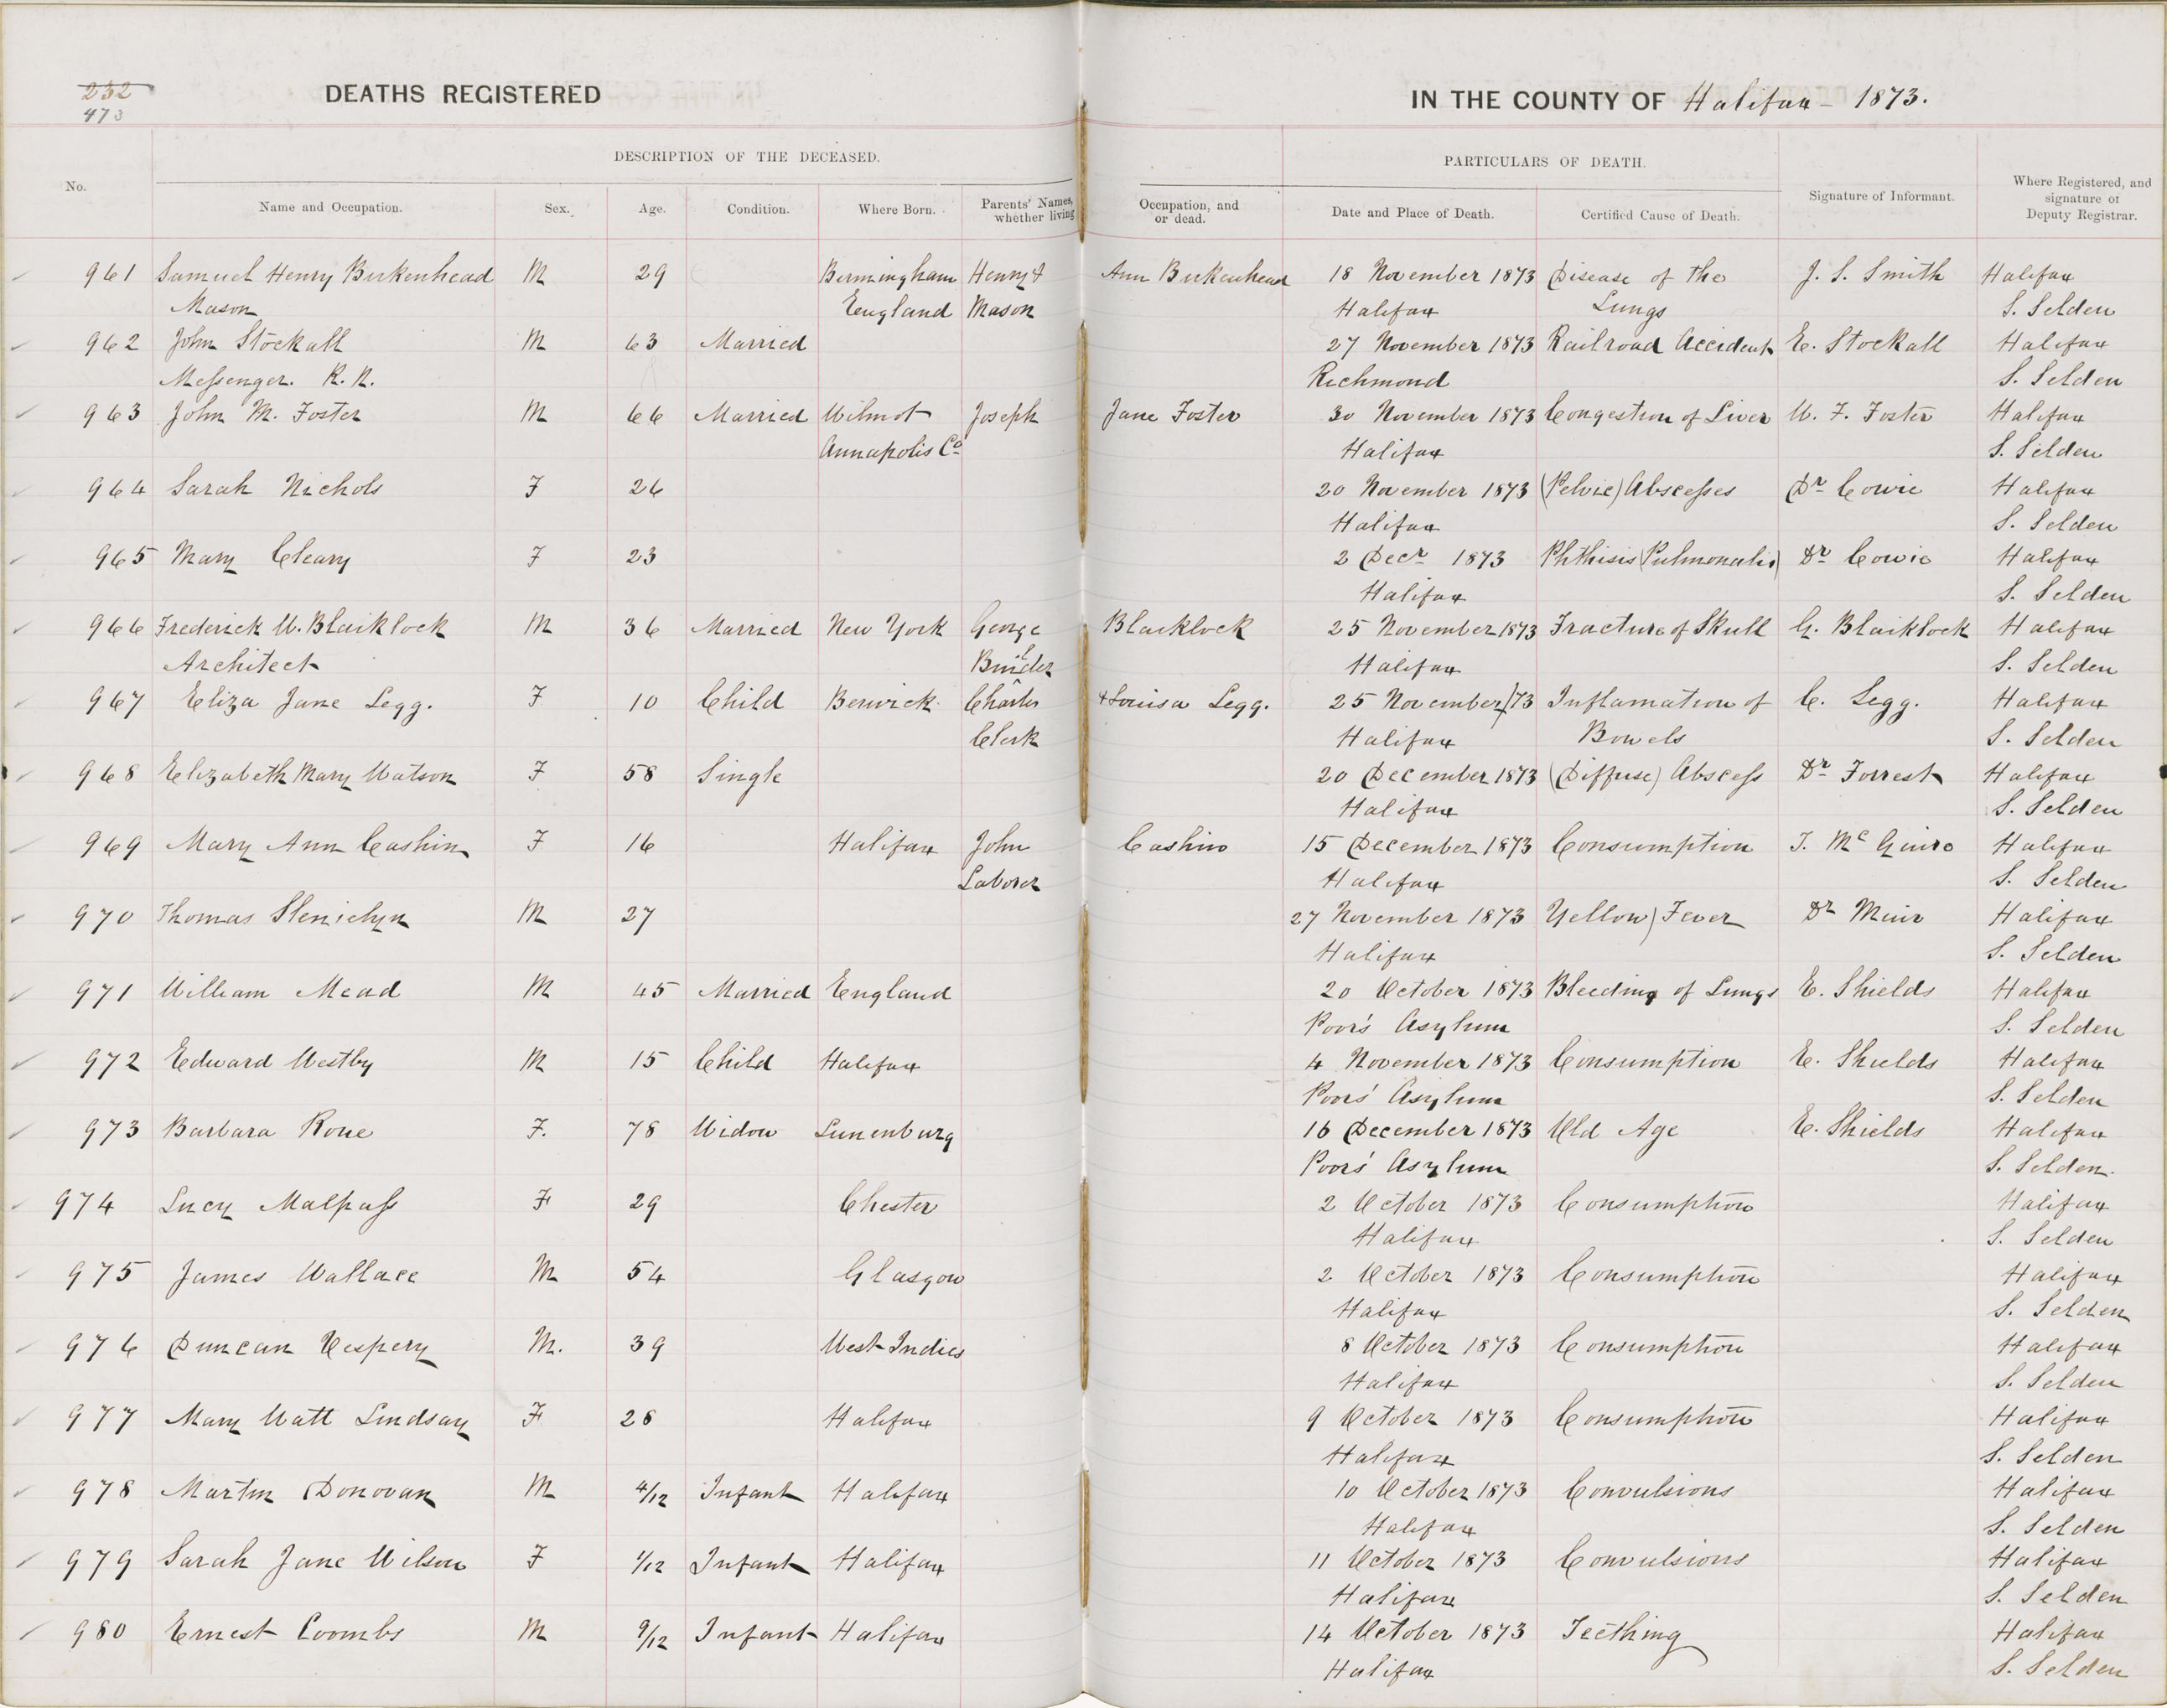 232
473
DEATHS REGISTERED IN THE COUNTY OF Halifax - 1873.
DESCRIPTION OF THE DECEASED. PARTICULARS OF DEATH.
No. Name and Occupation. Sex. Age. Condition. Where Born. Parents' Names, whether living Occupation, and or dead. Date and Place of Death. Certified Cause of Death. Signature of Informant. Where Registered, and signature of Deputy Registrar.
961 Samuel Henry Birkenhead M 29 Birmingham Henry & Ann Birkenhead 18 November 1873 Disease of the J. S. Smith Halifax
Mason England Mason Halifax Lungs S. Selden
962 John Stockall M 63 Married 27 November 1873 Railroad Accident E. Stockall Halifax
Messenger. R. R. Richmond S. Selden
963 John M. Foster M 66 Married Wilmot Joseph Jane Foster 30 November 1873 Congestion of Liver W. F. Foster Halifax
Annapolis Co Halifax S. Selden
964 Sarah Nichols F 26 20 November 1873 (Pelvic) Abscesses Dr Cowie Halifax
Halifax S. Selden
965 Mary Cleary F 23 2 Decr 1873 Phthisis (Pulmonalis) Dr Cowie Halifax
Halifax S. Selden
966 Frederick W. Blaiklock M 36 Married New York George Blaiklock 25 November 1873 Fracture of Skull G. Blaiklock Halifax
Architect Builder Halifax S. Selden
967 Eliza Jane Legg. F 10 Child Berwick Charles & Louisa Legg. 25 November/73 Inflamation of C. Legg. Halifax
Clerk Halifax Bowels S. Selden
968 Elizabeth Mary Watson F 58 Single 20 December 1873 (Diffuse) Abscess Dr Forrest Halifax
Halifax S. Selden
969 Mary Ann Cashin F 16 Halifax John Cashin 15 December 1873 Consumption Halifax
Laborer Halifax S. Selden
970 Thomas M 27 27 November 1873 Yellow) Fever Dr Muir Halifax
Halifax S. Selden
971 William Mead M 45 Married England 20 October 1873 Bleeding of Lungs E. Shields Halifax
Poor's Asylum S. Selden
972 Edward Westby M 15 Child Halifax 4 November 1873 Consumption E. Shields Halifax
Poors' Asylum S. Selden
973 Barbara Roue F. 78 Widow Lunenburg 16 December 1873 Old Age E. Shields Halifax
Poors' Asylum S. Selden.
974 Lucy Malpass F 29 Chester 2 October 1873 Consumption Halifax
Halifax S. Selden
975 James Wallace M 54 Glasgow 2 October 1873 Consumption Halifax
Halifax S. Selden
976 Duncan Vespery M. 39 West Indies 8 October 1873 Consumption Halifax
Halifax S. Selden
977 Mary Watt Lindsay F 28 Halifax 9 October 1873 Consumption Halifax
Halifax S. Selden
978 Martin Donovan M 4/12 Infant Halifax 10 October 1873 Convulsions Halifax
Halifax S. Selden
979 Sarah Jane Wilson F 1/12 Infant Halifax 11 October 1873 Convulsions Halifax
Halifax S. Selden
980 Ernest Coombs M 9/12 Infant Halifax 14 October 1873 Teething Halifax
Halifax S. Selden